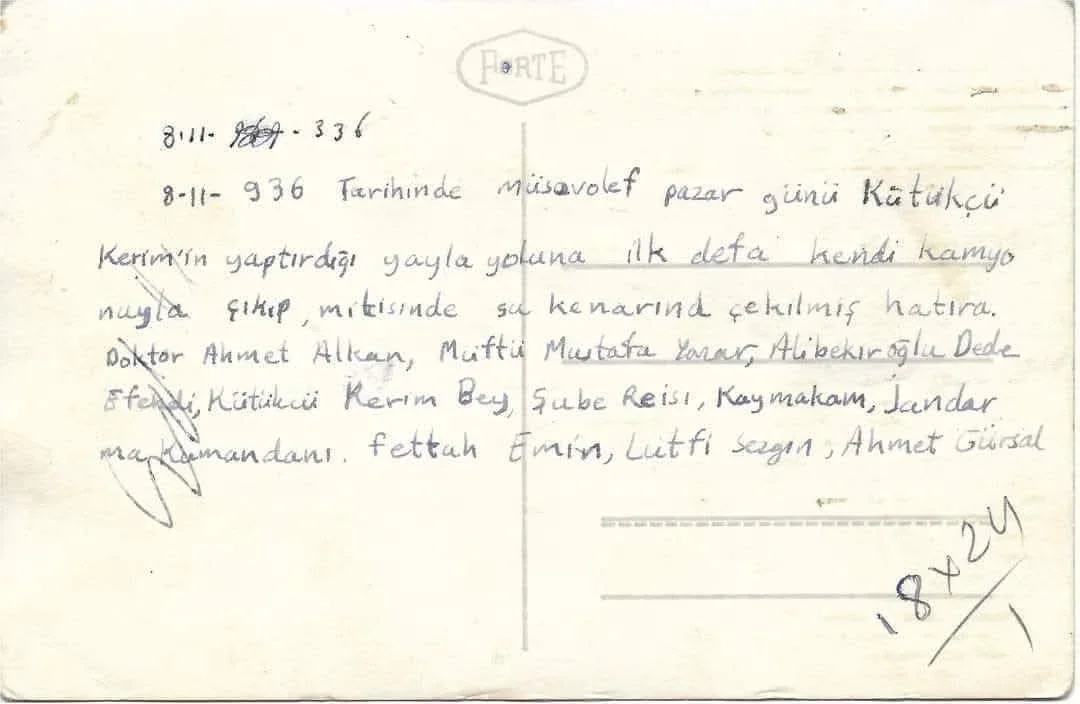 FORTE
8-11- - 336
8-11- 936 Tarihinde müsavolef pazar günü Kütükçü
Kerim'in yaptırdığı yayla yoluna ilk defa kendi kamyo
nuyla çıkıp, mitisinde su kenarınd çekilmiş hatıra.
Doktor Ahmet Alkan, Müftü Mustafa Yazar, Alibekiroğlu Dede
Efendi, Kütükcü Kerim Bey, Şube Reisi, Kaymakam, Jandar
ma Kumandanı. Fettah Emin, Lutfi Sezgin, Ahmet Gürsal
18x24/1